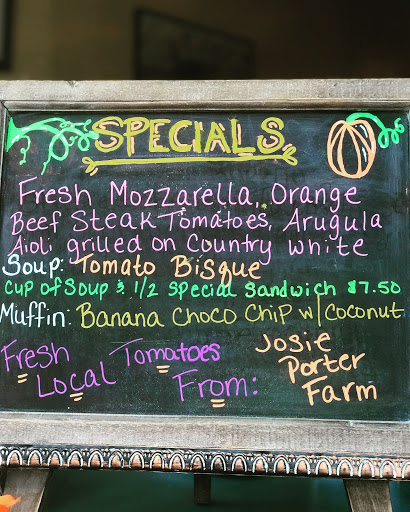 SPECIALS
Fresh Mozzarella, Orange
Beef Steak Tomatoes, Arugula
Aioli grilled on Country white
Soup: Tomato Bisque
Cup of Soup & 1/2 Special Sandwich $7.50
Muffin: Banana Choco Chip w/ Coconut
Fresh Local Tomatoes From:
Josie Porter Farm